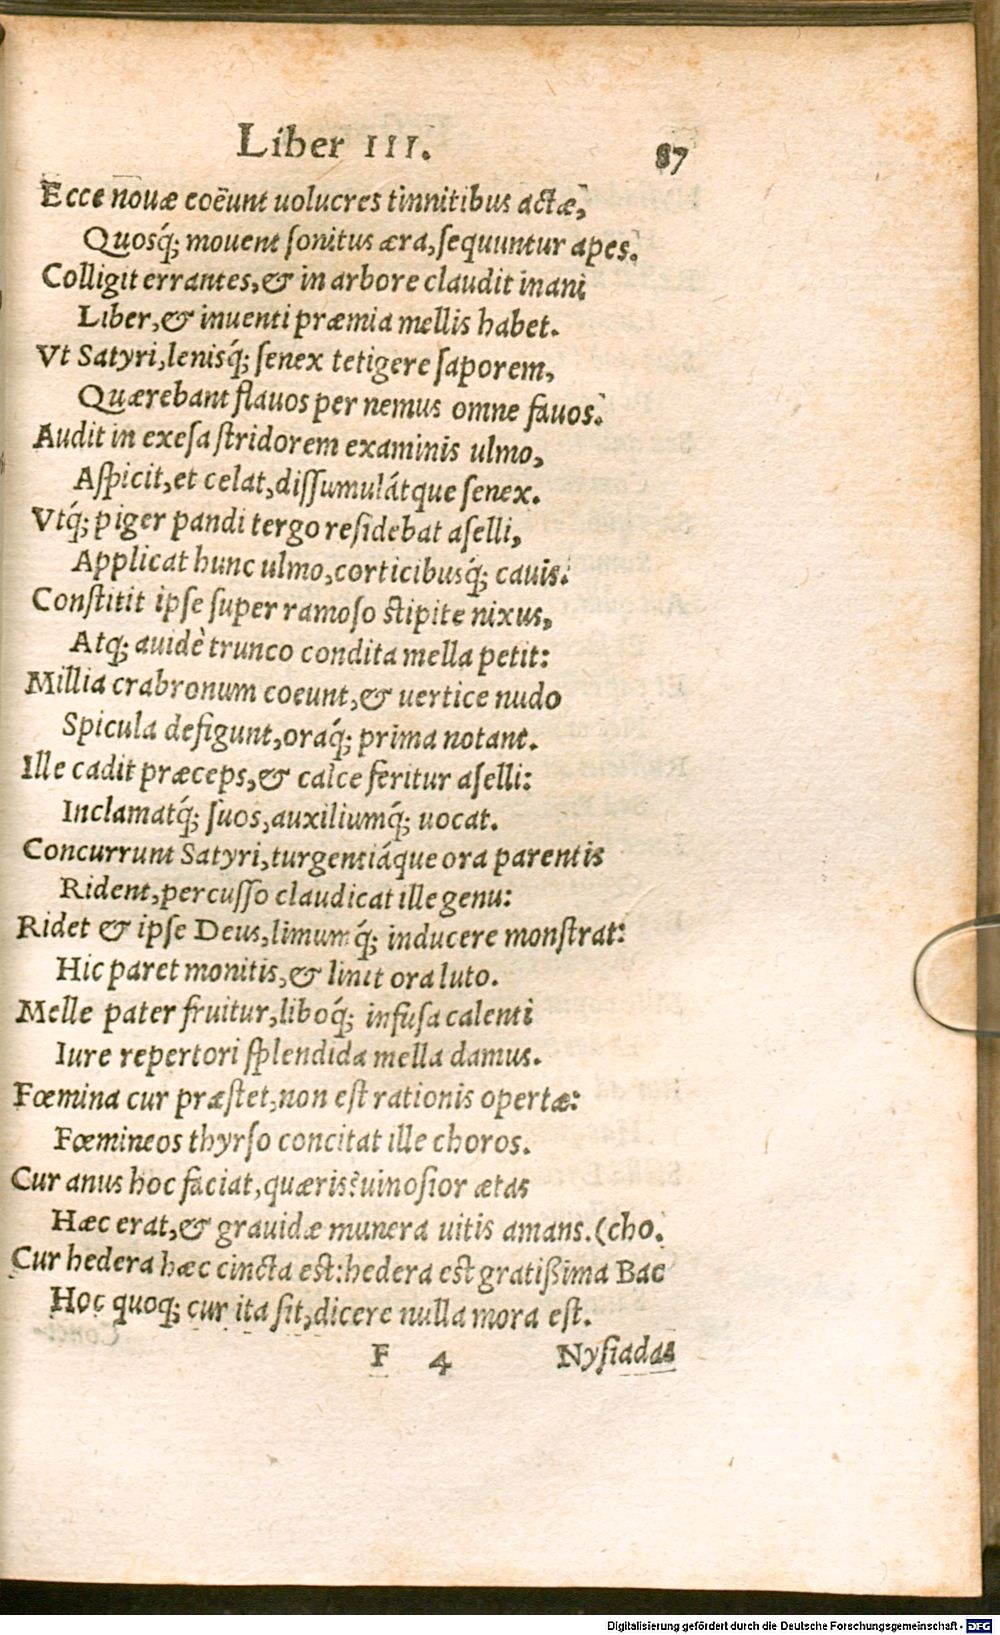 Liber III.
87
Ecce nouæ coëunt uolucres tinnitibus actæ,
Quosq́; mouent ſonitus æra, ſequuntur apes.
Colligit errantes, & in arbore claudit inani
Liber, & inuenti præmia mellis habet.
Vt Satyri, lenisq́; ſenex tetigere ſaporem,
Quærebant flauos per nemus omne fauos.
Audit in exeſa ſtridorem examinis ulmo,
Aſpicit, et celat, diſſumulátque ſenex.
Vtq́; piger pandi tergo reſidebat aſelli,
Applicat hunc ulmo, corticibusq́; cauis.
Conſtitit ipſe ſuper ramoſo ſtipite nixus,
Atq; auidè trunco condita mella petit:
Millia crabronum coeunt, & uertice nudo
Spicula defigunt, oraq́; prima notant.
Ille cadit præceps, & calce feritur aſelli:
Inclamatq́; ſuos, auxiliumq́; uocat.
Concurrunt Satyri, turgentiáque ora parentis
Rident, percuſſo claudicat ille genu:
Ridet & ipſe Deus, limumq́; inducere monſtrat:
Hic paret monitis, & linit ora luto.
Melle pater fruitur, liboq́; infuſa calenti
Iure repertori ſplendida mella damus.
Fœmina cur præſtet, non eſt rationis opertæ:
Fœmineos thyrſo concitat ille choros.
Cur anus hoc faciat, quæris? uinoſior ætas
Hæc erat, & grauidæ munera uitis amans. (cho.
Cur hedera hæc cincta eſt: hedera eſt gratißima Bac
Hoc quoq; cur ita ſit, dicere nulla mora eſt.
F 4 Nyſiadas
Digitalisierung gefördert durch die Deutsche Forschungsgemeinschaft - DFG